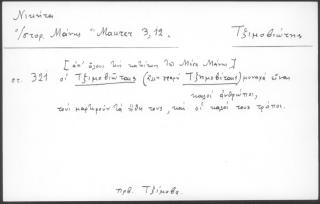 Νικήτα
Ιστορ. Μάνης Maurer 3, 12. Τζιμοβιώτης
[ἀπ' ὅλους τοὺς κατοίκους τῆς Μέσα Μάνης]
στ. 321 οἱ Τζιμοβιῶτες ( γραφὴ Τζημοβίτες) μοναχὰ εἶναι
καλοὶ ἀνθρῶποι,
τοὺς μαρτυροῦν τὰ ἤθη τους, καὶ οἱ καλοὶ τους τρόποι.
πρβ. Τζίμοβα.